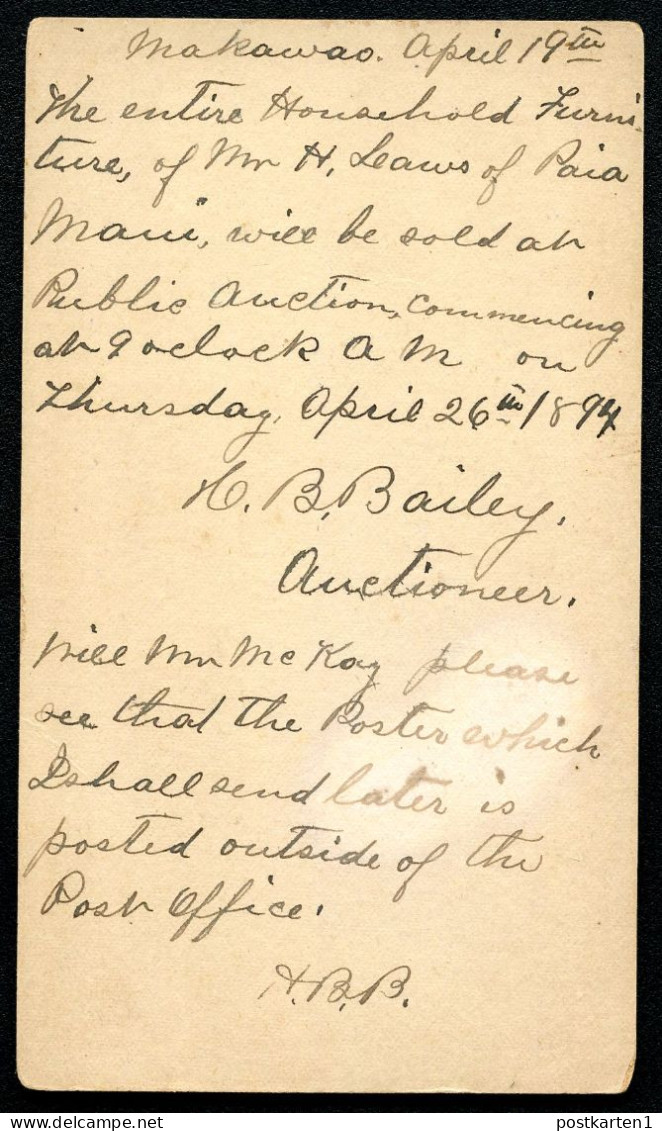 Makawao. April 19th
The entire Household Furni-
ture, of Mr H. Leaws of Paia
Maui, will be sold at
Public Auction, commencing
at 9 oclock A M on
Thursday, April 26th 1894
H. B. Bailey.
Auctioneer.
Will Mr McKay please
see that the Poster which
I shall send later is
posted outside of the
Post Office.
H.B.B.
postkarten1